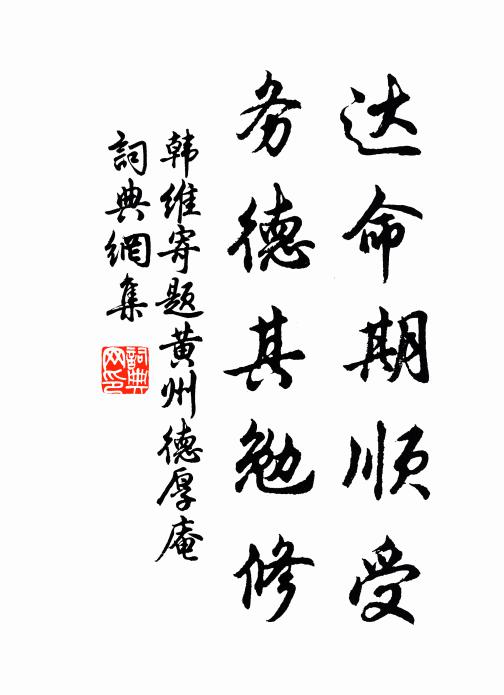 达命期顺受
务德其勉修
韩维寄题黄州德厚庵
詞典網集
詞典网印